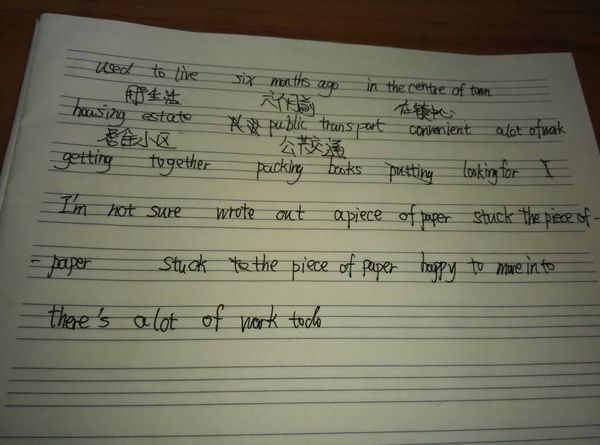 used to live six months ago in the centre of town
生活 六个月前 在镇中心
housing estate public transport convenient alot of work
小区 公共交通
getting together packing books putting looking for I
I'm not sure wrote out apiece of paper stuck the piece of-
- paper stuck to the piece of paper happy to move in to
there's alot of work todo